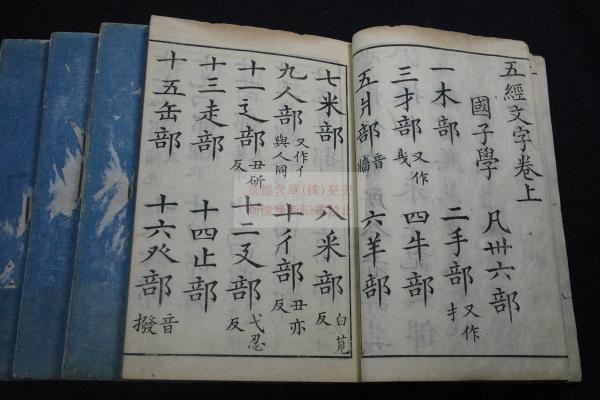 五經文字卷上
國子學 凡卅六部
一木部 二手部 又作扌
三才部 又作 四牛部
五爿部 音牆 六羊部
七米部 八釆部 白莧反
九人部 又作亻與人同 十彳部 丑亦反
十一辶部 丑斫反 十二廴部 弋忍反
十三走部 十四止部
十五缶部 十六癶部 音撥
京都含章(株)発売
画像無断転載禁止